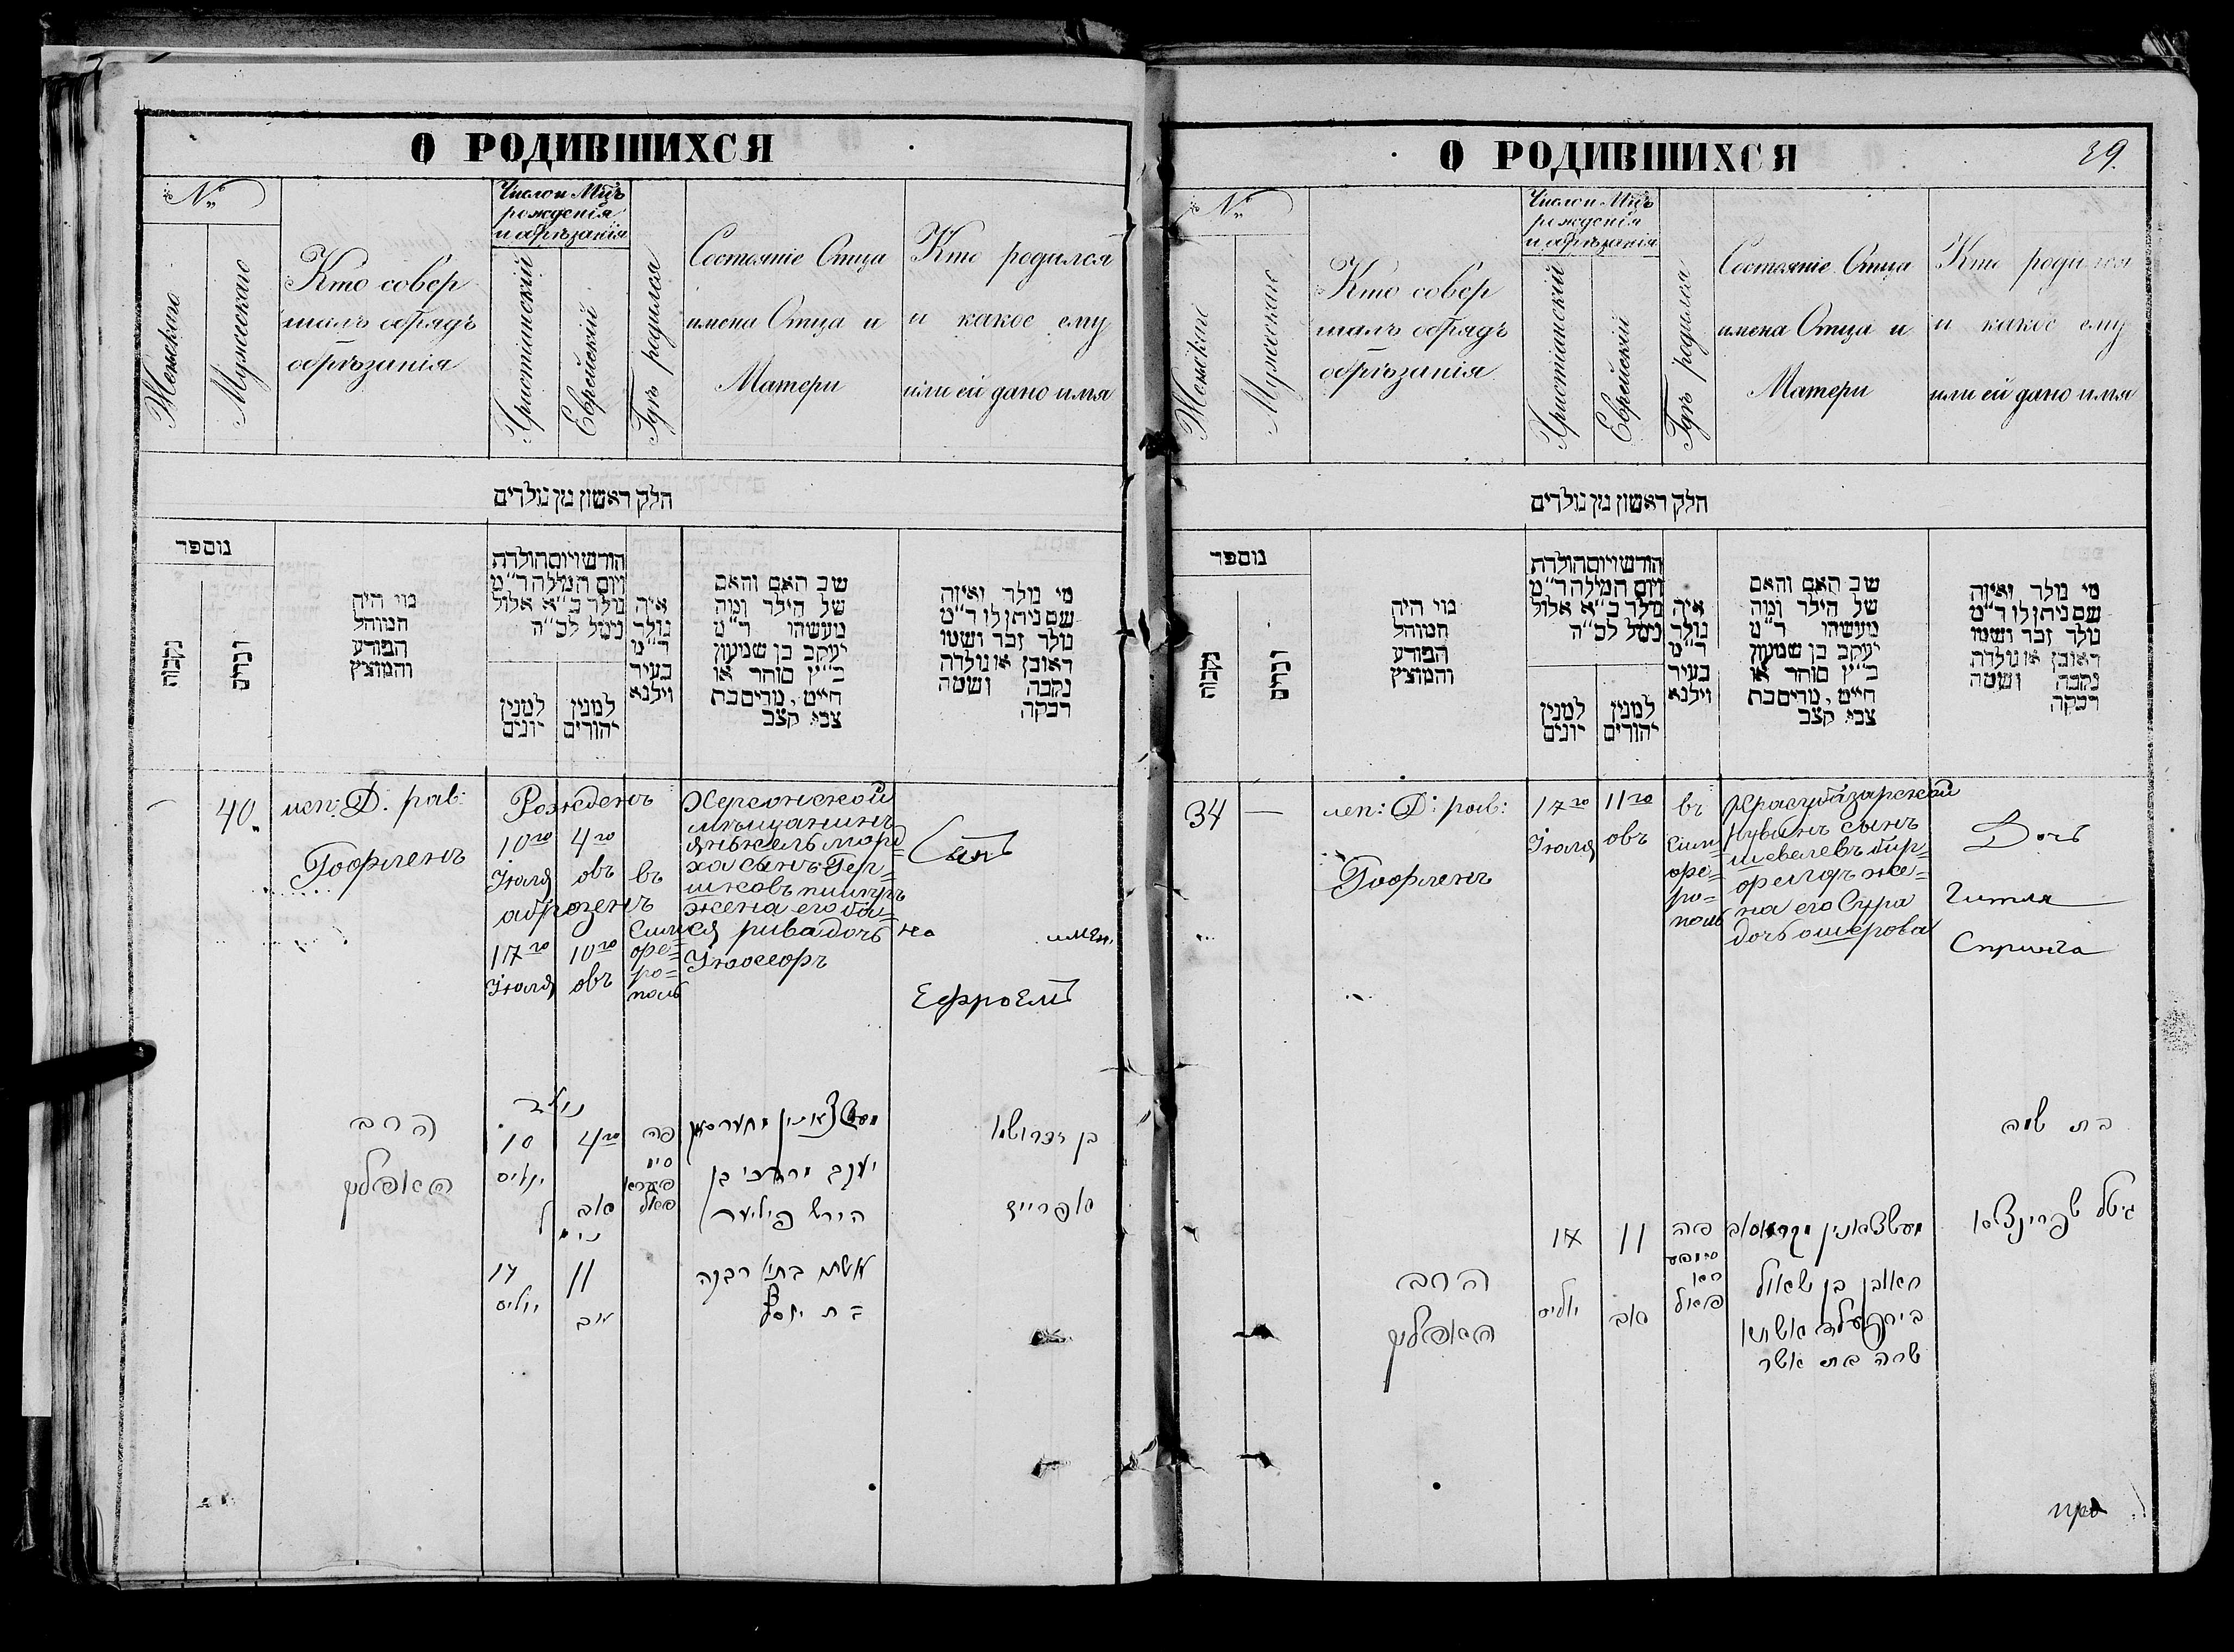 О РОДИВШИХСЯ
№
Женскаго
Мужескаго
Кто совер
шалъ обрядъ
обрѣзанія
Число и Мцъ
рожденія
и обрѣзанія
Христіанскій
Еврейскій
Гдѣ родился
Состояніе Отца
имена Отца и
Матери
Кто родился
и какое ему
или ей дано имя
חלק ראשון מן נולדים
מספר
נקבות
זכרים
מי היה
המוהל
הפורע
והמוצץ
חודש ויום הולדת
ויום המילה ד״מ
נולד כ״א אלול
נימל לכ״ה
למנין
יונים
למנין
יהודים
איה
נולד
ד״מ
בעיר
וילנא
שב האם והאם
של הילד ומה
מעשהו ד״מ
יעקב בן שמעון
כ״ץ סוחר או
חייט, מרים בת
צבי קצב
מי נולד ואיזה
שם ניתן לו ד״מ
נולד זכר ושמו
ראובן או נולדה
נקבה ושמה
רבקה
40
исп: Д. рав:
Гофменъ
Рожденъ
10го 4го
Іюля овъ
обрѣзенъ
17го 10го
Іюля овъ
въ
Сим
фе=
ро=
поль
Херсонской
мѣщанинъ
Янькель Морд
ха сынъ Гер=
шковъ
жена его ба=
ся рива дочь
Сынъ
на имен.
Ефроемъ
הרב
נולד
10 4го
יוליס
אב
נימל
17 11
יוליס
אב
פה
סימ
פערא
פאל
יעקב מרדכי בן
הירש
אשתו בתיא רבקה
בת יוסף
בן זכר ושמו
אפרים
О РОДИВШИХСЯ
29.
№
Женскаго
Мужескаго
Кто совер
шалъ обрядъ
обрѣзанія
Число и Мцъ
рожденія
и обрѣзанія
Христіанскій
Еврейскій
Гдѣ родился
Состояніе Отца
имена Отца и
Матери
Кто родился
и какое ему
или ей дано имя
חלק ראשון מן נולדים
מספר
נקבות
זכרים
מי היה
המוהל
הפורע
והמוצץ
חודש ויום הולדת
ויום המילה ד״מ
נולד כ״א אלול
נימל לכ״ה
למנין
יונים
למנין
יהודים
איה
נולד
ד״מ
בעיר
וילנא
שב האם והאם
של הילד ומה
מעשהו ד״מ
יעקב בן שמעון
כ״ץ סוחר או
חייט, מרים בת
צבי קצב
מי נולד ואיזה
שם ניתן לו ד״מ
נולד זכר ושמו
ראובן או נולדה
נקבה ושמה
רבקה
34 —
исп: Д: рав:
Гофменъ
17го 11го
Іюля овъ
въ
Сим=
фе=
ро=
поль
Карасубазарской
Рувинъ сынъ
Шевелевъ бир=
фелдъ же=
на его Сура
дочь ошерова
Дочь
Гитля
Спринца
בת שמה
גיטל שפרינצא
הרב
17 11
יוליס אב
פה
ראובן בן שאול
בירפעלד אשתו
שרה בת אשר